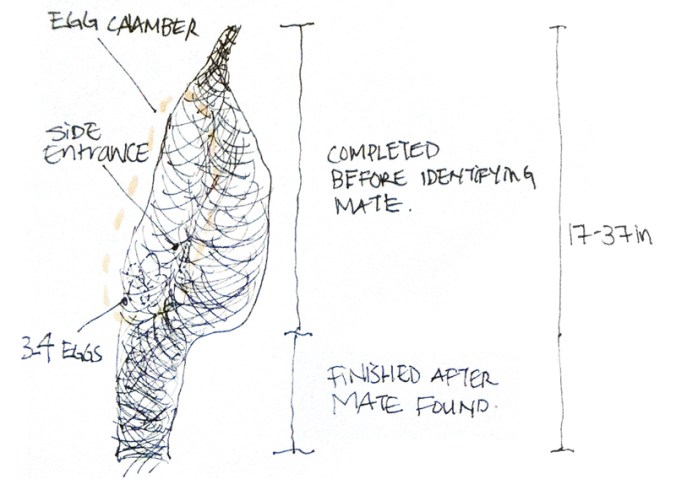 EGG CHAMBER
SIDE
ENTRANCE
3-4 EGGS
COMPLETED
BEFORE IDENTIFYING
MATE.
FINISHED AFTER
MATE FOUND.
17-37in